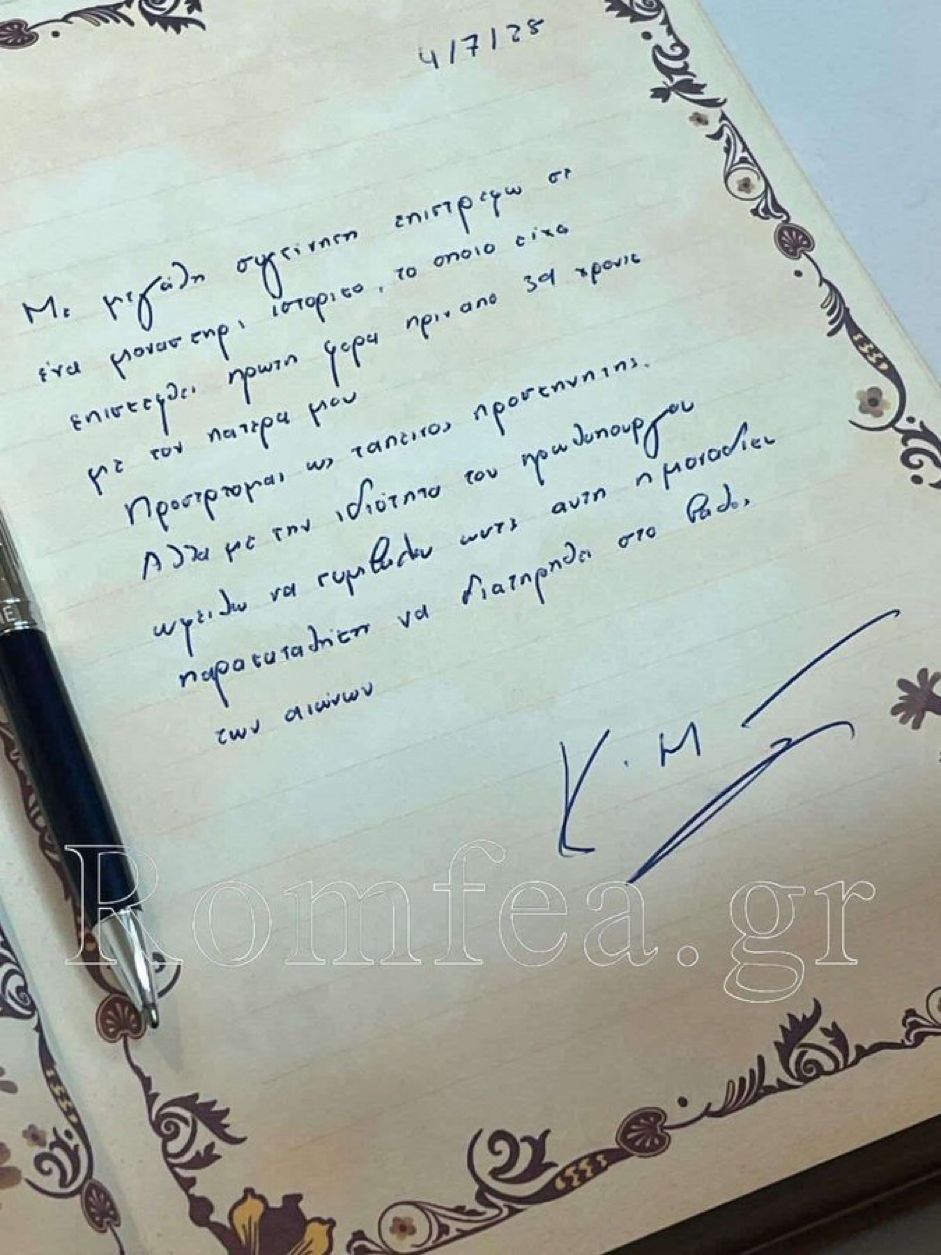 4/7/25
Με μεγάλη συγκίνηση επιστρέφω σε
ένα μοναστηρι ιστορικο, το οποιο ειχα
επισκεφθει πρωτη φορα πριν απο 39 χρονια
με τον πατερα μου
Προσερχομαι ως ταπεινος προσκυνητης.
Αλλα με την ιδιότητα του πρωθυπουργου
οφειλω να συμβαλω ωστε αυτη η μοναδικη
παρακαταθηκη να διατηρηθει στο βαθος
των αιώνων
Κ. Μ
ME
Romfea.gr